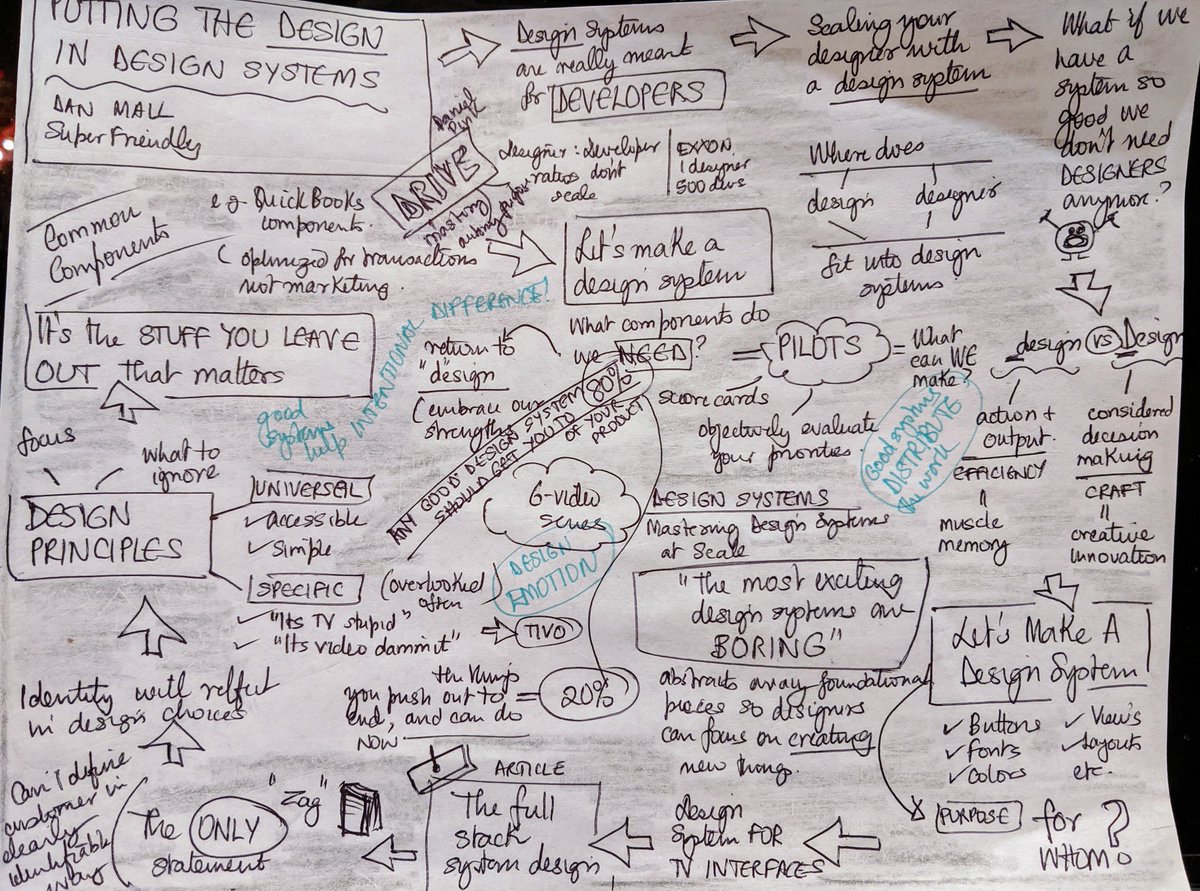 PUTTING THE DESIGN
IN DESIGN SYSTEMS
DAN MALL
SuperFriendly
Design Systems
are really meant
for DEVELOPERS
Scaling your
designer with
a design system
What if we
have a
system so
good we
don't need
DESIGNERS
anymore?
Daniel
Pink
DRIVE
mastery
autonomy
Designer : developer
ratios don't
scale
EXXON
1 designer
500 devs
Where does
design designer
fit into design
systems
design vs Design
action +
output
EFFICIENCY
=
muscle
memory
considered
decision
making
CRAFT
=
creative
innovation
Let's Make A
Design System
✓ Buttons
✓ Fonts
✓ Colors
✓ Views
✓ Layouts
etc.
PURPOSE
for
WHOM?
design
System FOR
TV INTERFACES
ARTICLE
The full
stack
system design
"Zag"
The ONLY
statement
Can't define
customer in
clearly
identifiable
way
Identity with
in design choices
DESIGN
PRINCIPLES
focus
what to
ignore
UNIVERSAL
✓ accessible
✓ simple
SPECIFIC
(overlooked
often
✓ "Its TV stupid"
✓ "Its video dammit"
TIVO
It's the STUFF YOU LEAVE
OUT that matters
Common
Components
eg QuickBooks
components.
( optimized for transactions
not marketing.
Let's make a
design system
What components do
we NEED?
= PILOTS =
What
can WE
make?
scorecards
objectively evaluate
your priorities.
good systems
DISTRIBUTE
the work
good
systems
help INTENTIONAL DIFFERENCE!
return to
"design
(embrace our
strengths
ANY GOOD DESIGN SYSTEM
SHOULD GET YOU TO 80%
OF YOUR
PRODUCT
6-video
series
DESIGN
EMOTION
DESIGN SYSTEMS
Mastering Design Systems
at Scale
"The most exciting
design systems are
BORING"
abstracts away foundational
pieces so designers
can focus on creating
new things.
the things
you push out to
end, and can do
NOW
= 20%